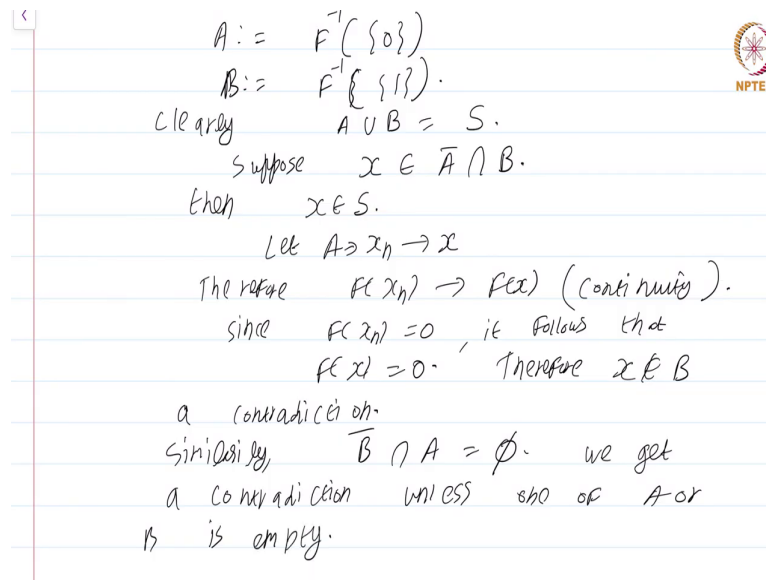 A := F⁻¹({0})
NPTE
B := F⁻¹({1}).
clearly A ∪ B = S.
suppose x ∈ A̅ ∩ B.
then x ∈ S.
Let A ∋ xₙ → x
Therefore F(xₙ) → F(x) (continuity).
since F(xₙ) = 0, it follows that
F(x) = 0. Therefore x ∉ B
a contradiction.
similarly, B̅ ∩ A = ∅. we get
a contradiction unless one of A or
B is empty.